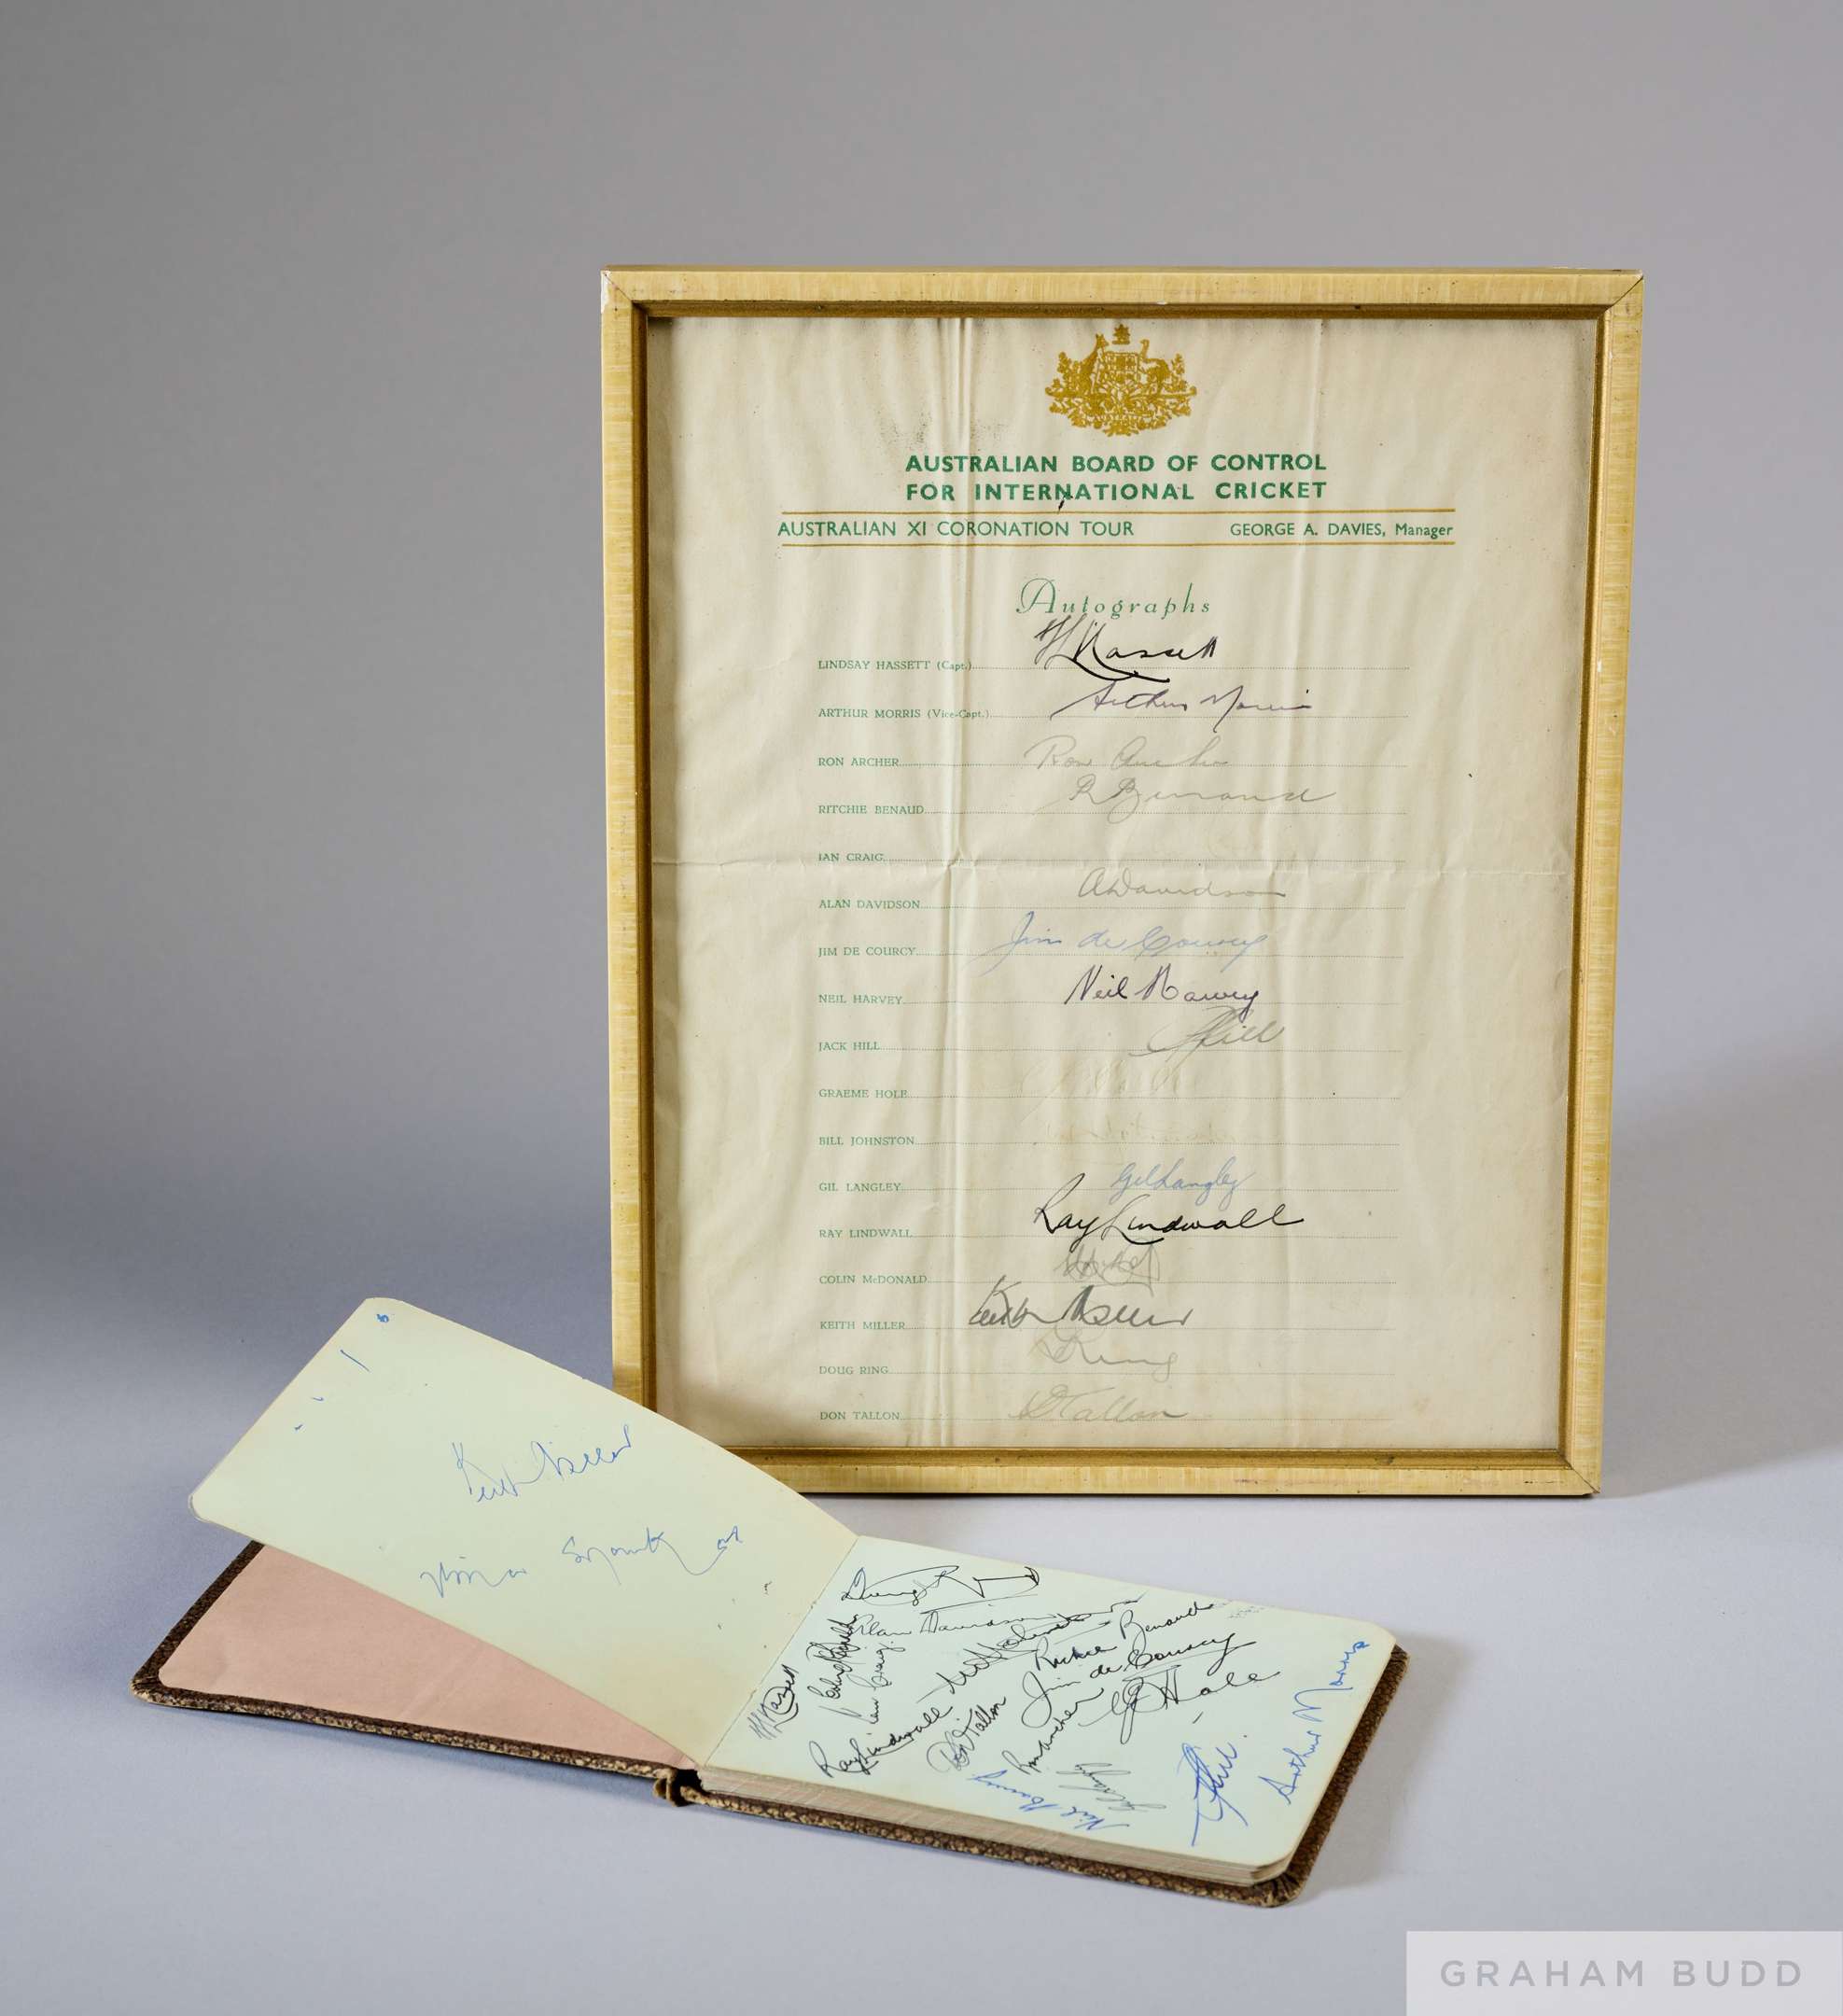 AUSTRALIA
AUSTRALIAN BOARD OF CONTROL
FOR INTERNATIONAL CRICKET
AUSTRALIAN XI CORONATION TOUR GEORGE A. DAVIES, Manager
Autographs
LINDSAY HASSETT (Capt.) Hassett
ARTHUR MORRIS (Vice-Capt.) Arthur Morris
RON ARCHER Ron Archer
RITCHIE BENAUD R Benaud
IAN CRAIG
ALAN DAVIDSON A Davidson
JIM DE COURCY Jim de Courcy
NEIL HARVEY Neil Harvey
JACK HILL J Hill
GRAEME HOLE
BILL JOHNSTON
GIL LANGLEY Gil Langley
RAY LINDWALL Ray Lindwall
COLIN McDONALD
KEITH MILLER Keith Miller
DOUG RING D Ring
DON TALLON D Tallon
Keith Miller
Doug Ring
Alan Davidson
Richie Benaud
Jim de Courcy
G Hole
Colin McDonald
Ian Craig
Hassett
Ray Lindwall
Don Tallon
R Archer
Neil Harvey
J Hill
Arthur Morris
GRAHAM BUDD